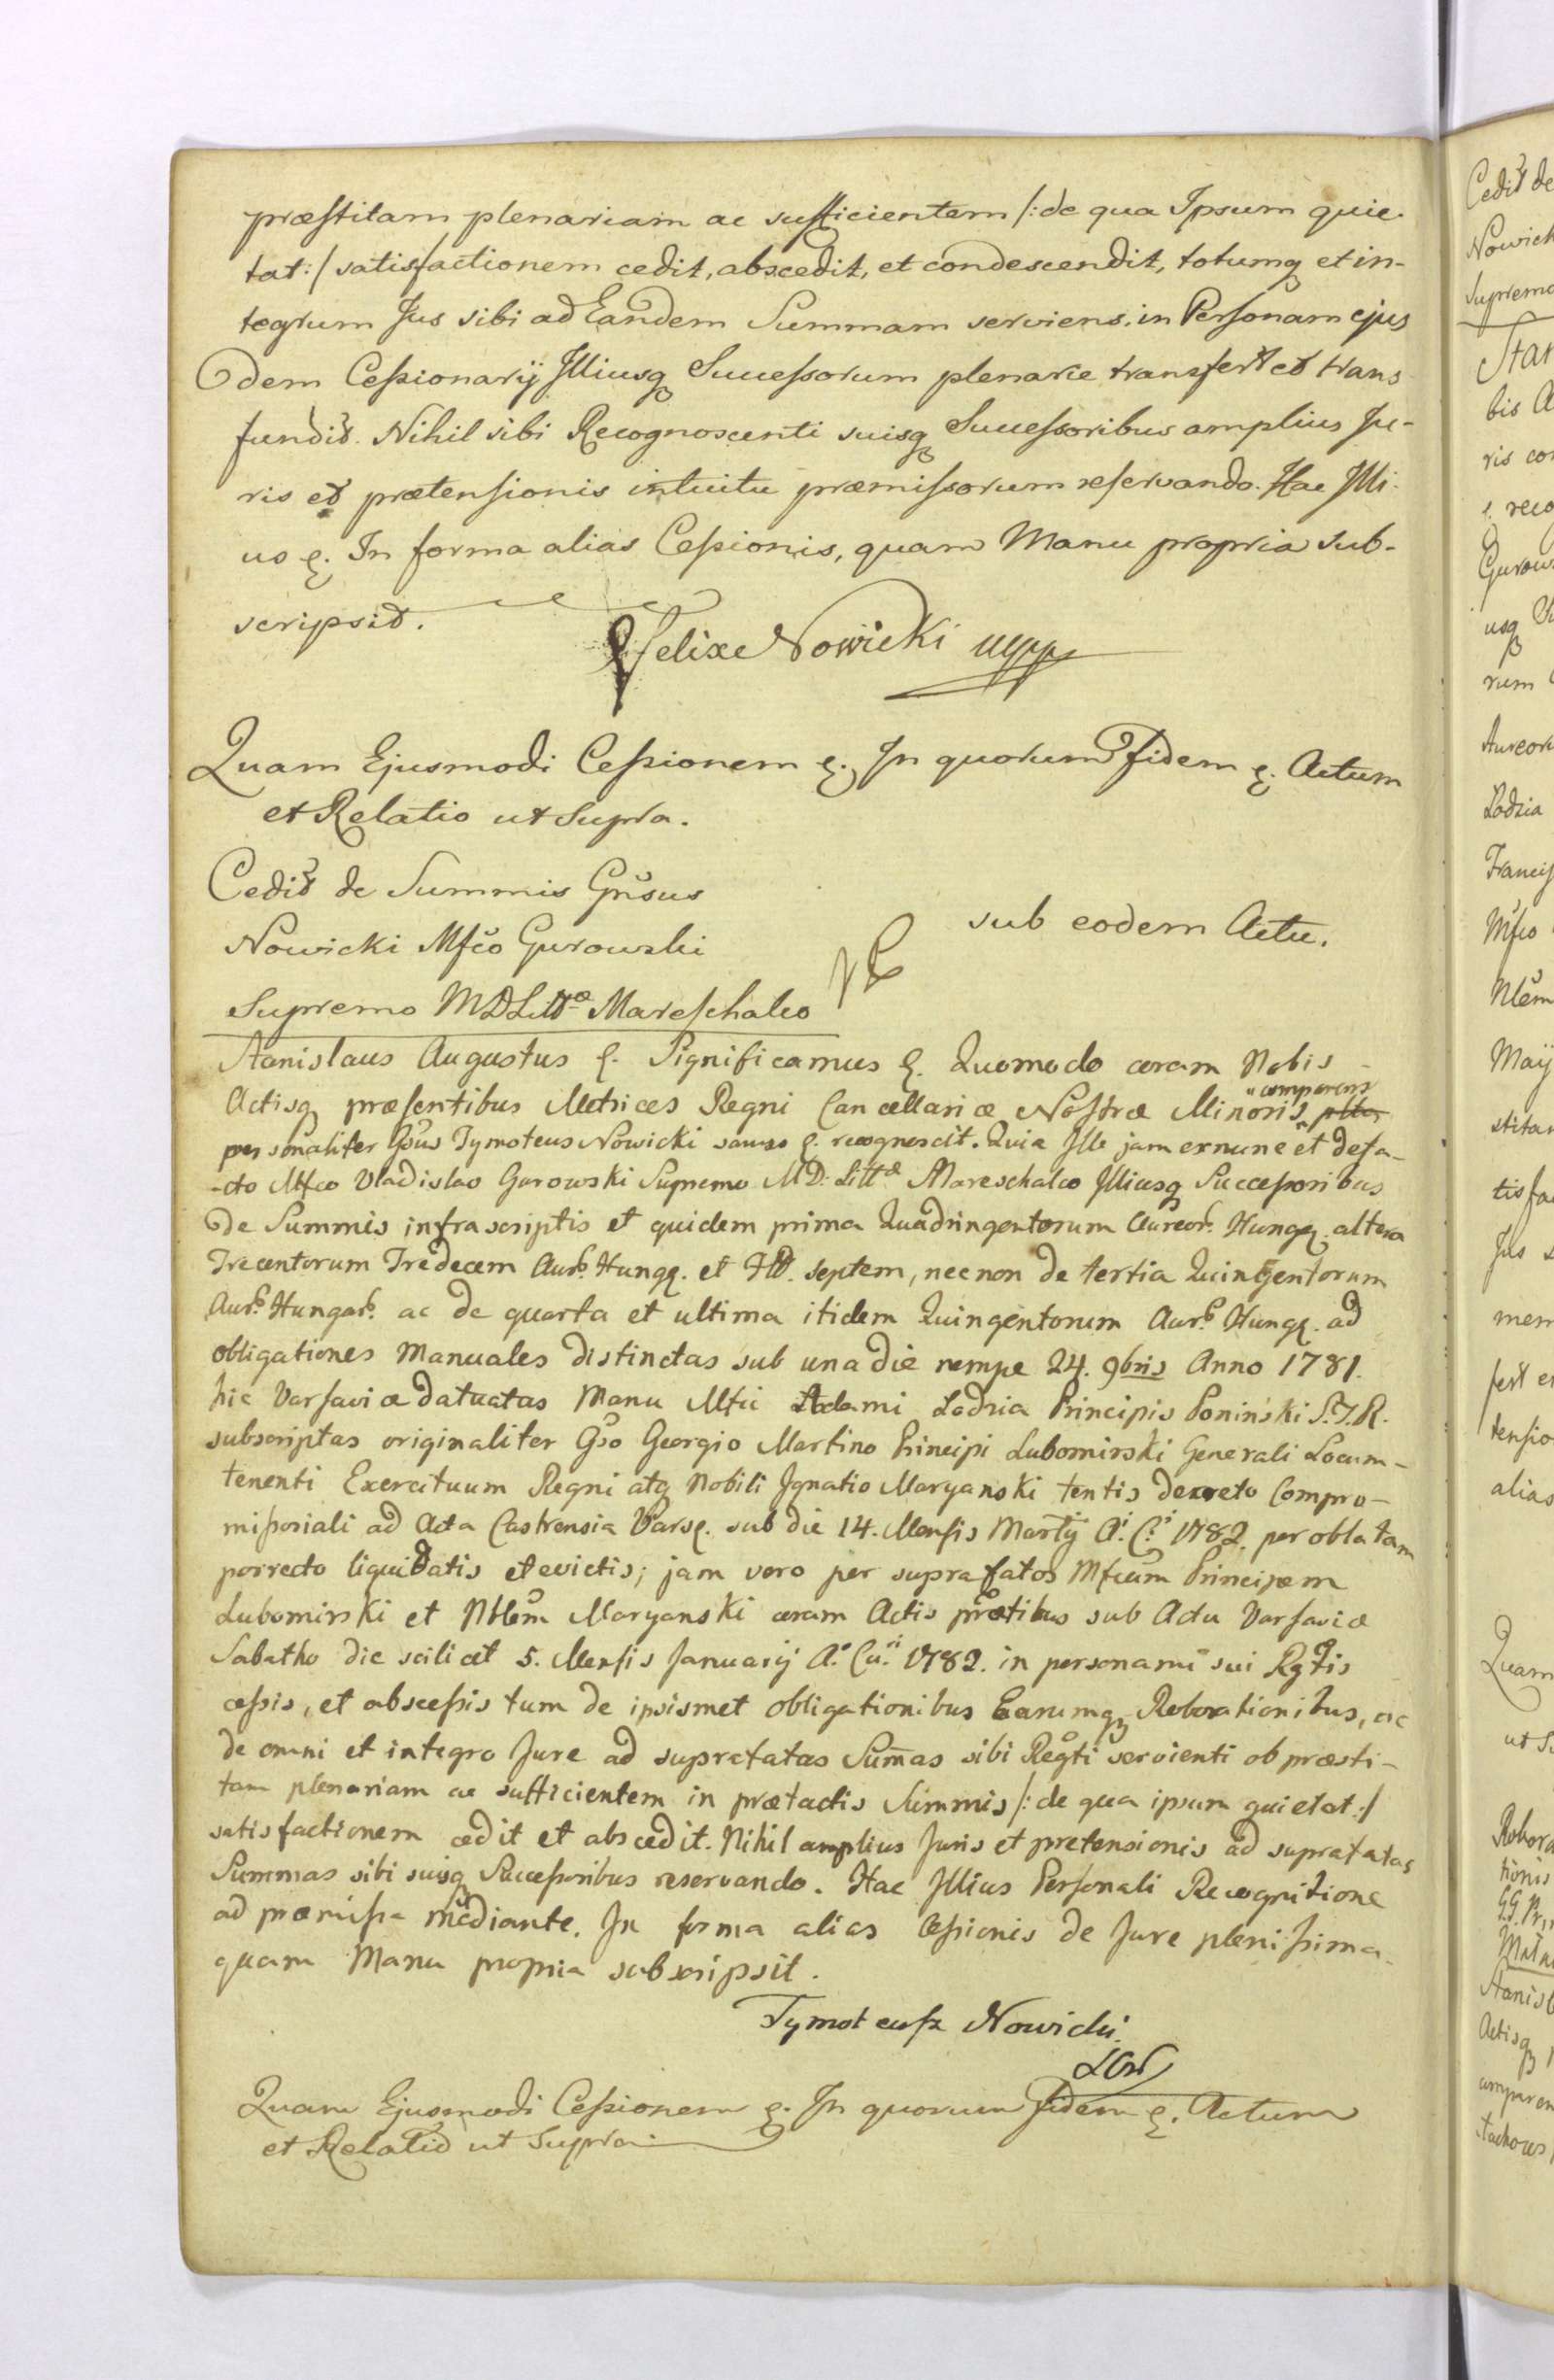 præstitam plenariam ac sufficientem /: de qua Ipsum quie-
tat :/ satisfactionem cedit, abscedit, et condescendit, totumq et in-
tegrum Jus sibi ad Eandem Summam serviens, in Personam ejus
dem Cessionarij Illiusq Successorum plenarie transfert et trans
fundit. Nihil sibi Recognoscenti suisq Successoribus amplius Ju-
ris et prætensionis intuitu præmissorum reservando. Hac Illi-
us &. In forma alias Cessionis, quam Manu propria sub-
scripsit.
Felixe Nowicki mpp
Quam Ejusmodi Cessionem &. In quorum Fidem &. Actum
et Relatio ut Supra.
Cedit de Summis Gnsus
Nowicki Mfco Gurowski
Supremo MDLittæ Mareschalco
sub eodem Actu.
Stanislaus Augustus &. Significamus &. Quomodo coram Nobis
Actisq præsentibus Metrices Regni Cancellariæ Nostræ Minoris comparens
personaliter Gsus Tymoteus Nowicki sanus &. recognoscit. Quia Ille jam exnunc et defa-
-cto Mfco Vladislao Gurowski Supremo MD: Littæ Mareschalco Illiusq Successoribus
De Summis infrascriptis et quidem prima Quadringentorum Aureor. Hung. altera
Trecentorum Tredecem Aur. Hung. et Fll. septem, necnon de tertia Quingentorum
Aur. Hungar. ac de quarta et ultima itidem Quingentorum Aur. Hung. ad
obligationes Manuales distinctas sub una die nempe 24. 9bris Anno 1781.
hic Varsaviæ datuatas Manu Mfci Adami Lodzia Principis Poninski S.I.R.
subscriptas originaliter Gso Georgio Martino Principi Lubomirski Generali Locum-
tenenti Exercituum Regni atq Nobili Ignatio Maryanski tentis decreto Compro-
missoriali ad Acta Castrensia Vars. sub die 14. Mensis Martij A. C. 1782. per oblatam
porrecto liquidatis et evictis; jam vero per suprafatos Mfcum Principem
Lubomirski et Nblem Maryanski coram Actis prætibus sub Actu Varsaviæ
Sabatho die scilicet 5. Mensis Januarij A. Cu. 1782. in personam sui Rgtis
cessis, et abscessis tum de ipsismet obligationibus Earumq Roborationibus, ac
de omni et integro Jure ad supratatas Sumas sibi Regti servienti ob præsti-
tam plenariam ac sufficientem in prætactis Summis /: de qua ipsum quietat :/
satisfactionem cedit et abscedit. Nihil amplius Juris et pretensionis ad supratatas
Summas sibi suisq Successoribus reservando. Hac Illius Personali Recognitione
ad præmissa mediante. In forma alias Cessionis de Jure plenissima
quam Manu propria subscripsit.
Tymoteusz Nowicki
Quam Ejusmodi Cessionem &. In quorum Fidem &. Actum
et Relatio ut Supra.